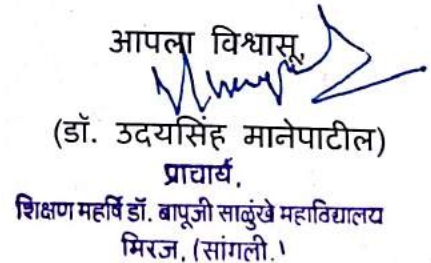 आपला विश्वासू,
(डॉ. उदयसिंह मानेपाटील)
प्राचार्य,
शिक्षण महर्षि डॉ. बापूजी साळुंखे महाविद्यालय
मिरज, (सांगली.)